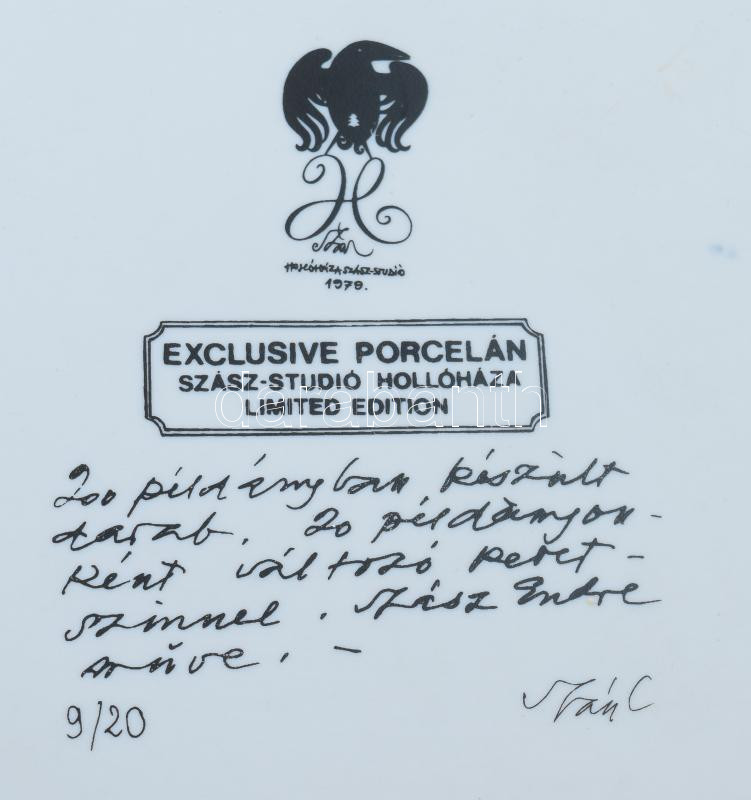 H
Szász
HOLLÓHÁZA SZÁSZ-STUDIÓ
1979.
EXCLUSIVE PORCELÁN
SZÁSZ-STUDIÓ HOLLÓHÁZA
LIMITED EDITION
darabanth
200 példányban készült
darab. 20 példányon-
ként változó keret-
színnel. Szász Endre
műve. -
9/20